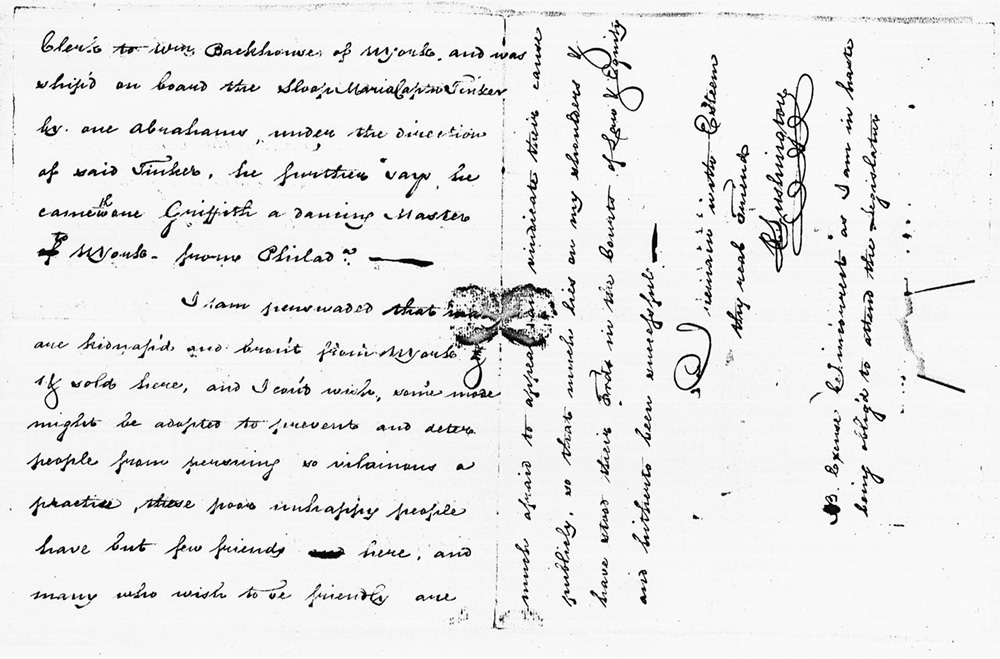 Clerk to Wm Backhouse, of NYork, and was
ship'd on board the Sloop Maria Capn Tinker
by one Abrahams, under the direction
of said Tinker, he further says he
came wth one Griffith a dancing Master
to NYork - from Philada.
I am perswaded that many
are kidnap'd and bro't from NYork &
& sold here, and I cou'd wish, some mode
might be adopted to prevent and deter
people from persuing so vilainous a
practice, these poor unhappy people
have but few friends here, and
many who wish to be friendly are
much afraid to appear and vindicate their cause
publicly, so that much lies on my shoulders &
have stood their in the Courts of Law & Equity
and hitherto been successful -
I remain with Esteem
thy real Friend
Washington
NB Excuse as I am in haste
being oblig'd to attend the Legislature